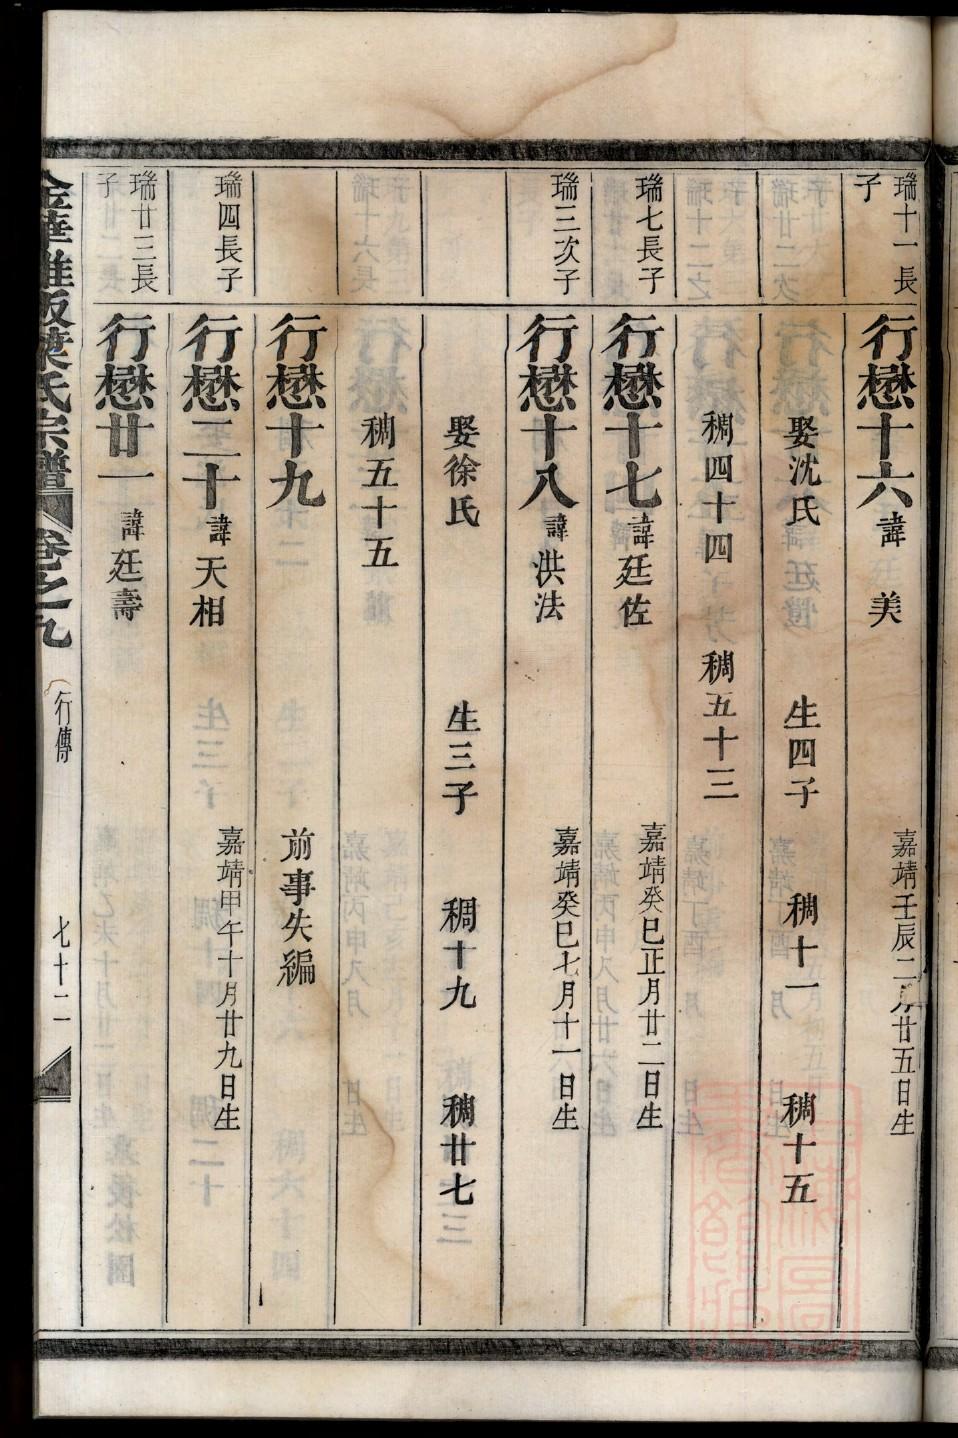 瑞十一長子
行懋十六 諱 美 嘉靖壬辰二月廿五日生
娶沈氏 生四子 稠十一 稠十五
稠四十四 稠五十三
瑞七長子
行懋十七 諱廷佐 嘉靖癸巳正月廿二日生
瑞三次子
行懋十八 諱洪法 嘉靖癸巳七月十一日生
娶徐氏 生三子 稠十九 稠廿七
稠五十五
行懋十九 前事失編
瑞四長子
行懋二十 諱天相 嘉靖甲午十月廿九日生
瑞廿三長子
行懋廿一 諱廷壽
金華 葉氏宗譜 卷之九 行傳 七十二